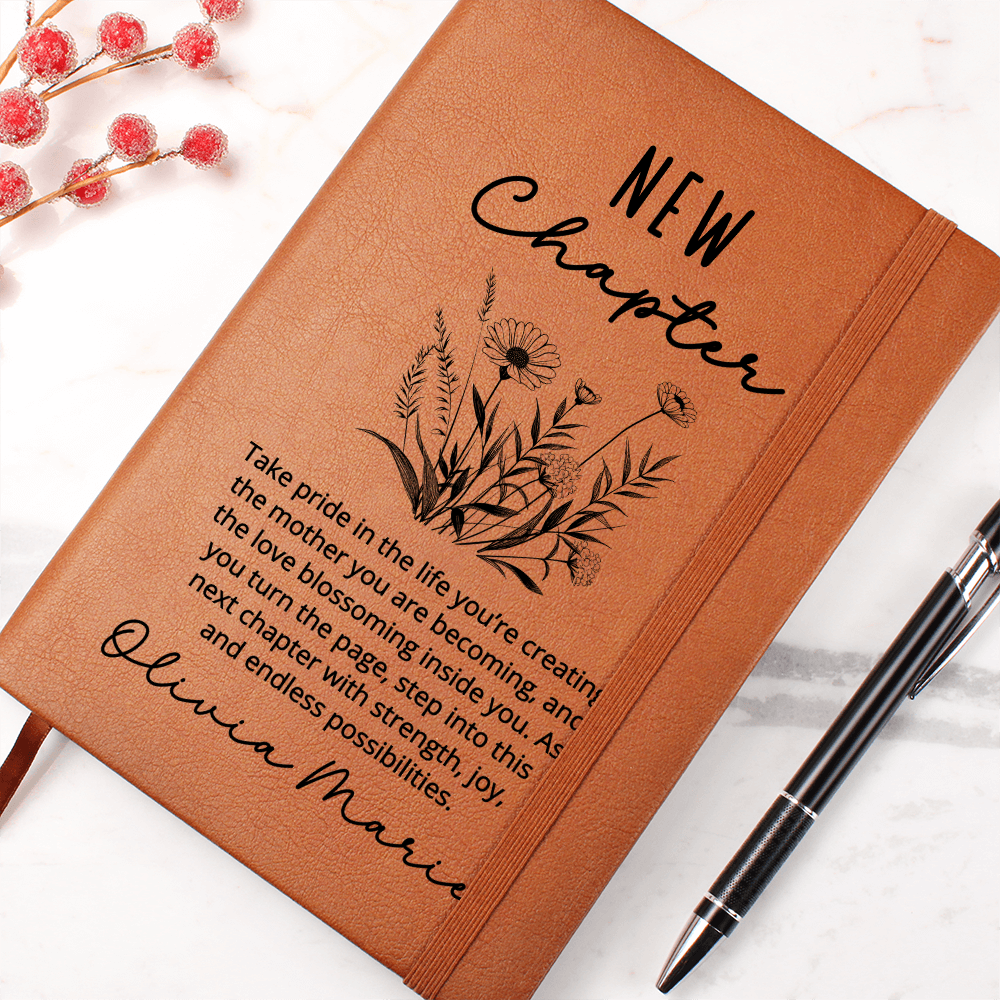 NEW
Chapter
Take pride in the life you're creating,
the mother you are becoming, and
the love blossoming inside you. As
you turn the page, step into this
next chapter with strength, joy,
and endless possibilities.
Olivia Marie